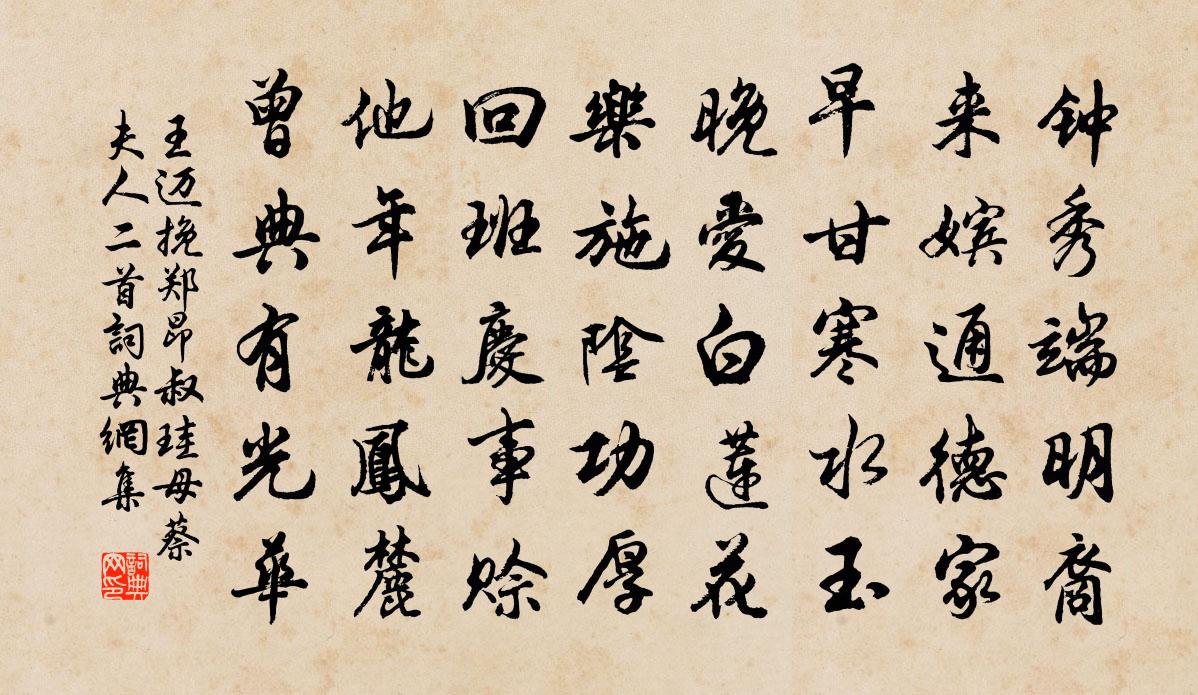 钟秀端明裔
来嫔通德家
早甘寒水玉
晚爱白蓮花
樂施陰功厚
回班慶事賒
他年龍鳳麓
曾典有光華
王迈挽郑昂叔珪母蔡
夫人二首詞典網集
詞典
网印